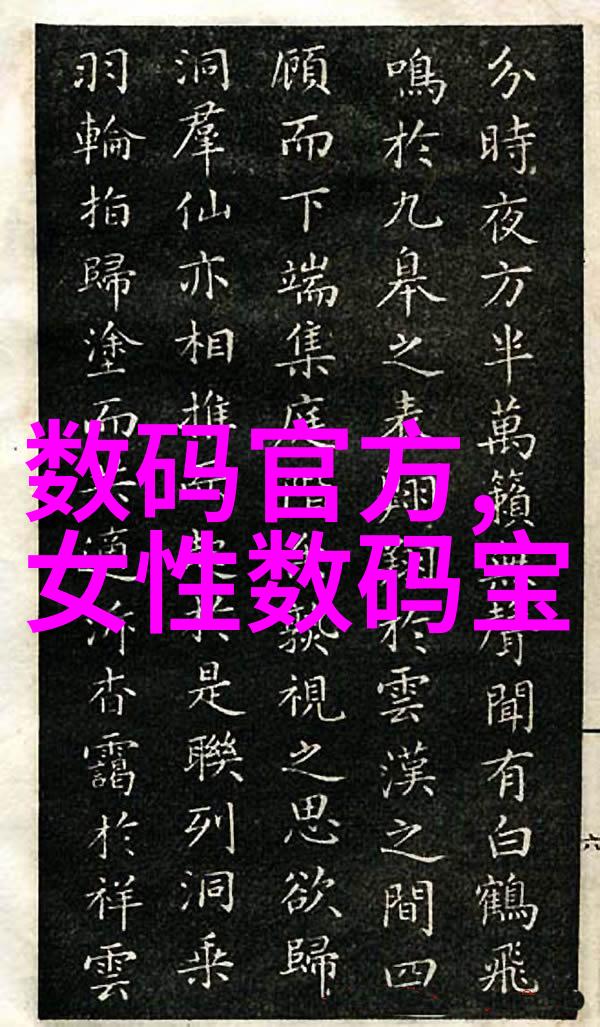 分時夜方半萬籟無聲聞有白鶴飛
鳴於九皋之表翱翔於雲漢之間四
顧而下端集庭視之思欲歸
洞羣仙亦相推於是聯列洞乘
羽輪拍歸塗而共適泝杳靄於祥雲
数码官方,
女性数码宝
六